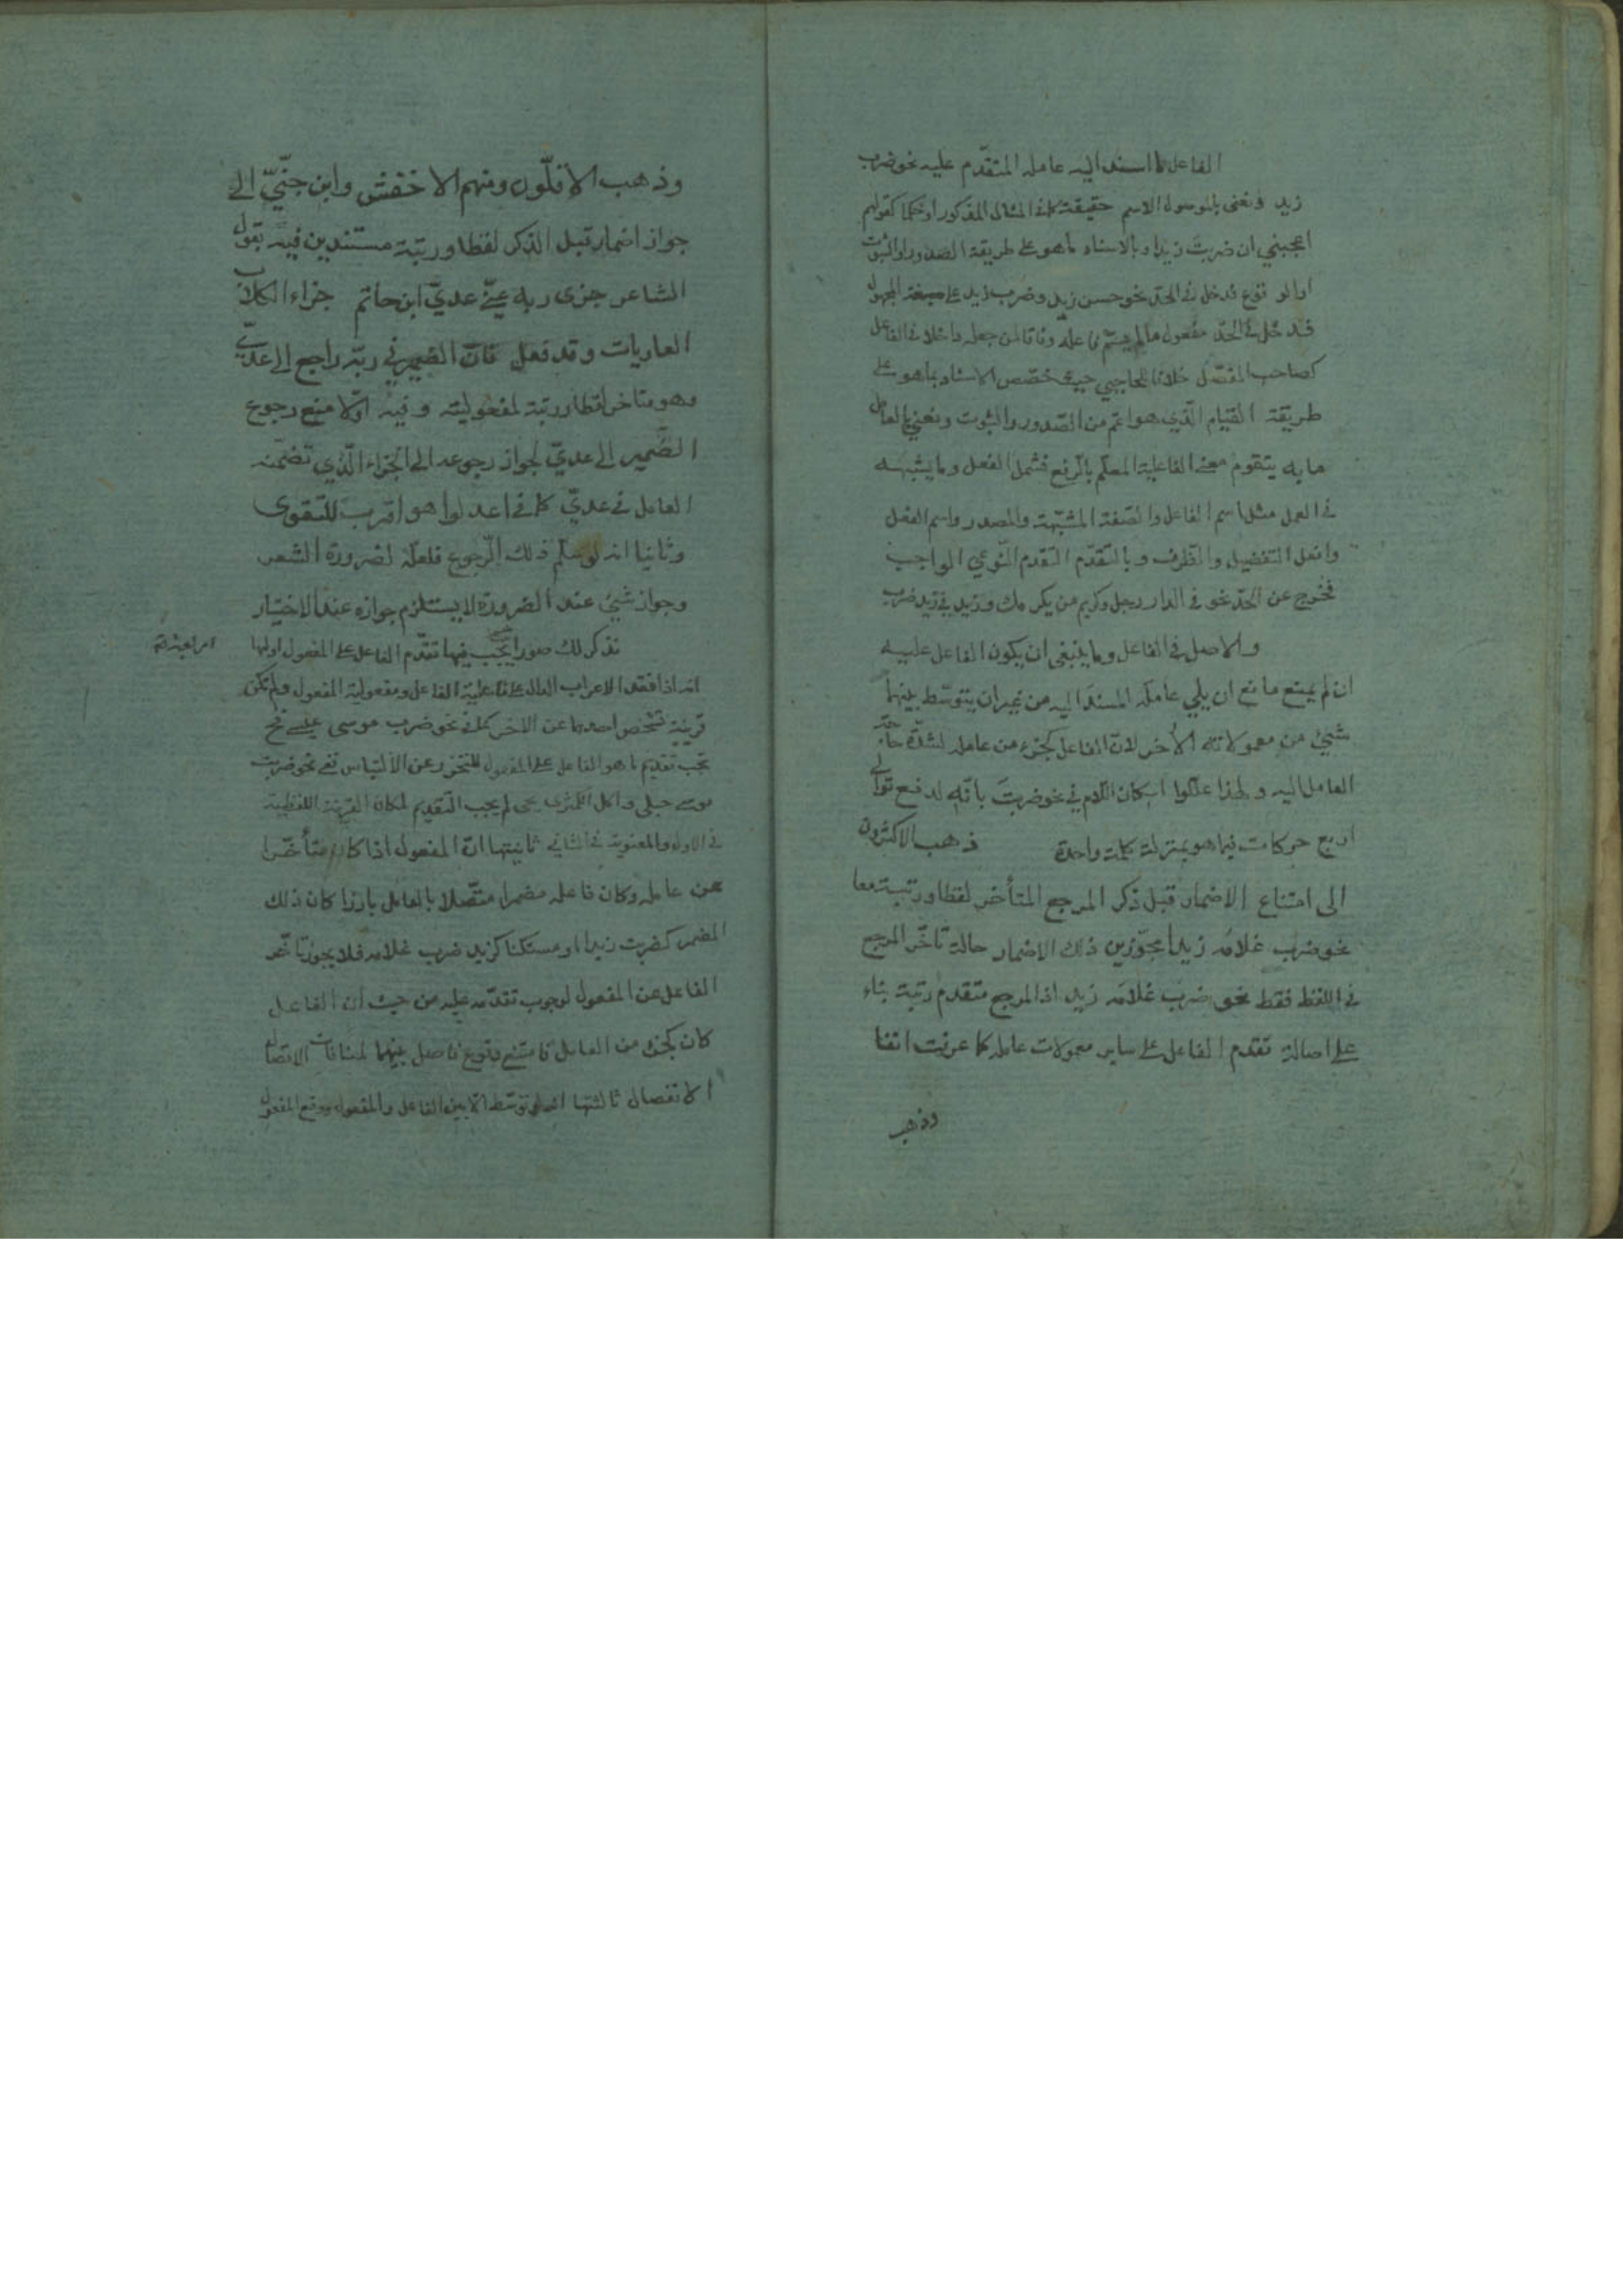 الفاعل ما اسند اليه عامله المتقدّم عليه نحو ضرب
زيد ونعنى بالموصول الاسم حقيقة كما فى المثال المذكور او حكما كقولهم
اعجبني ان ضربت زيدا وبالاسناد ما هو على طريقة الصدور او الثبوت
او الوقوع فدخل فى الحدّ نحو حسن زيد وضرب زيد على صيغة المجهول
فدخل فى الحدّ مفعول ما لم يسمّ فاعله وفاقا لمن جعله داخلا فى الفاعل
كصاحب المفصّل خلافا للحاجبي حيث خصّص الاسناد بما هو على
طريقة القيام الّذي هو اعم من الصّدور والثبوت ونعني بالعامل
ما به يتقوم معنى الفاعلية المعلّم بالرّفع فشمل الفعل وما يشبهه
فى العمل مثل اسم الفاعل والصّفة المشبّهة والمصدر واسم الفعل
وافعل التفضيل والظرف وبالتّقدّم التقدم النّوعي الواجب
فخرج عن الحدّ نحو فى الدار رجل وكريم من يكرمك وزيد فى زيد ضرب
والاصل فى الفاعل وما ينبغى ان يكون الفاعل عليه
ان لم يمنع مانع ان يلي عامله المسند اليه من غير ان يتوسّط بينهما
شيئ من معمولاته الأخر لانّ الفاعل كجزء من عامله لشدّة حاجة
العامل اليه ولهذا علّلوا اسكان اللام فى نحو ضربت بانّه لدفع توالى
اربع حركات فيما هو بمنزلة كلمة واحدة ذهب الاكثرون
الى امتناع الاضمار قبل ذكر المرجع المتأخر لفظا ورتبة معا
نحو ضرب غلامه زيدا مجوّزين ذلك الاضمار حالة تأخّر المرجع
فى اللفظ فقط نحو ضرب غلامَه زيد اذ المرجع متقدم رتبة بناء
على اصالة تقدم الفاعل على ساير معمولات عامله كما عرفت انفا
وذهب
وذهب الاقلّون ومنهم الاخفش وابن جنّيّ الى
جواز اضمار قبل الذكر لفظا ورتبة مستندين فيه بقول
الشاعر جزى ربه عنّي عديّ ابن حاتم جزاء الكلاب
العاويات وقد فعل فانّ الضمير في ربّه راجع الى عديّ
وهو متأخر لفظا ورتبة لمفعوليته وفيه اوّلا منع رجوع
الضّمير الى عديّ لجواز رجوعه الى الجزاء الّذي تضمّنه
العامل فى عديّ كما فى اعدلوا هو اقرب للتّقوى
وثانيا انه لو سلّم ذلك الرّجوع فلعلّه لضرورة الشعر
وجواز شيئ عند الضرورة لا يستلزم جوازه عند الاختيار
نذكر لك صورا يجب فيها تقدّم الفاعل على المفعول اولها
انه اذا فقد الاعراب الدال على فاعلية الفاعل ومفعولية المفعول ولم تكن
قرينة تشخص احدهما عن الاخر كما فى نحو ضرب موسى عيسى فح
يجب تقديم ما هو الفاعل على المفعول للتحرّز عن الالتباس ففى نحو ضربت
موسى حبلى واكل الكمثرى يحيى لم يجب التقديم لمكان القرينة اللفظية
فى الاول والمعنوية فى الثانى ثانيتها انّ المفعول اذا كان متأخّرا
عن عامله وكان فاعله مضمرا متّصلا بالعامل بارزا كان ذلك
المضمر كضربت زيدا او مستكنا كزيد ضرب غلامه فلا يجوز تأخّر
الفاعل عن المفعول لوجوب تقدّمه عليه من حيث ان الفاعل
كان كجزء من العامل فامتنع وقوع فاصل بينهما لمنافات الاتصال
الانفصال ثالثتها انه لو توسّط الّا بين الفاعل والمفعول ووقع المفعول